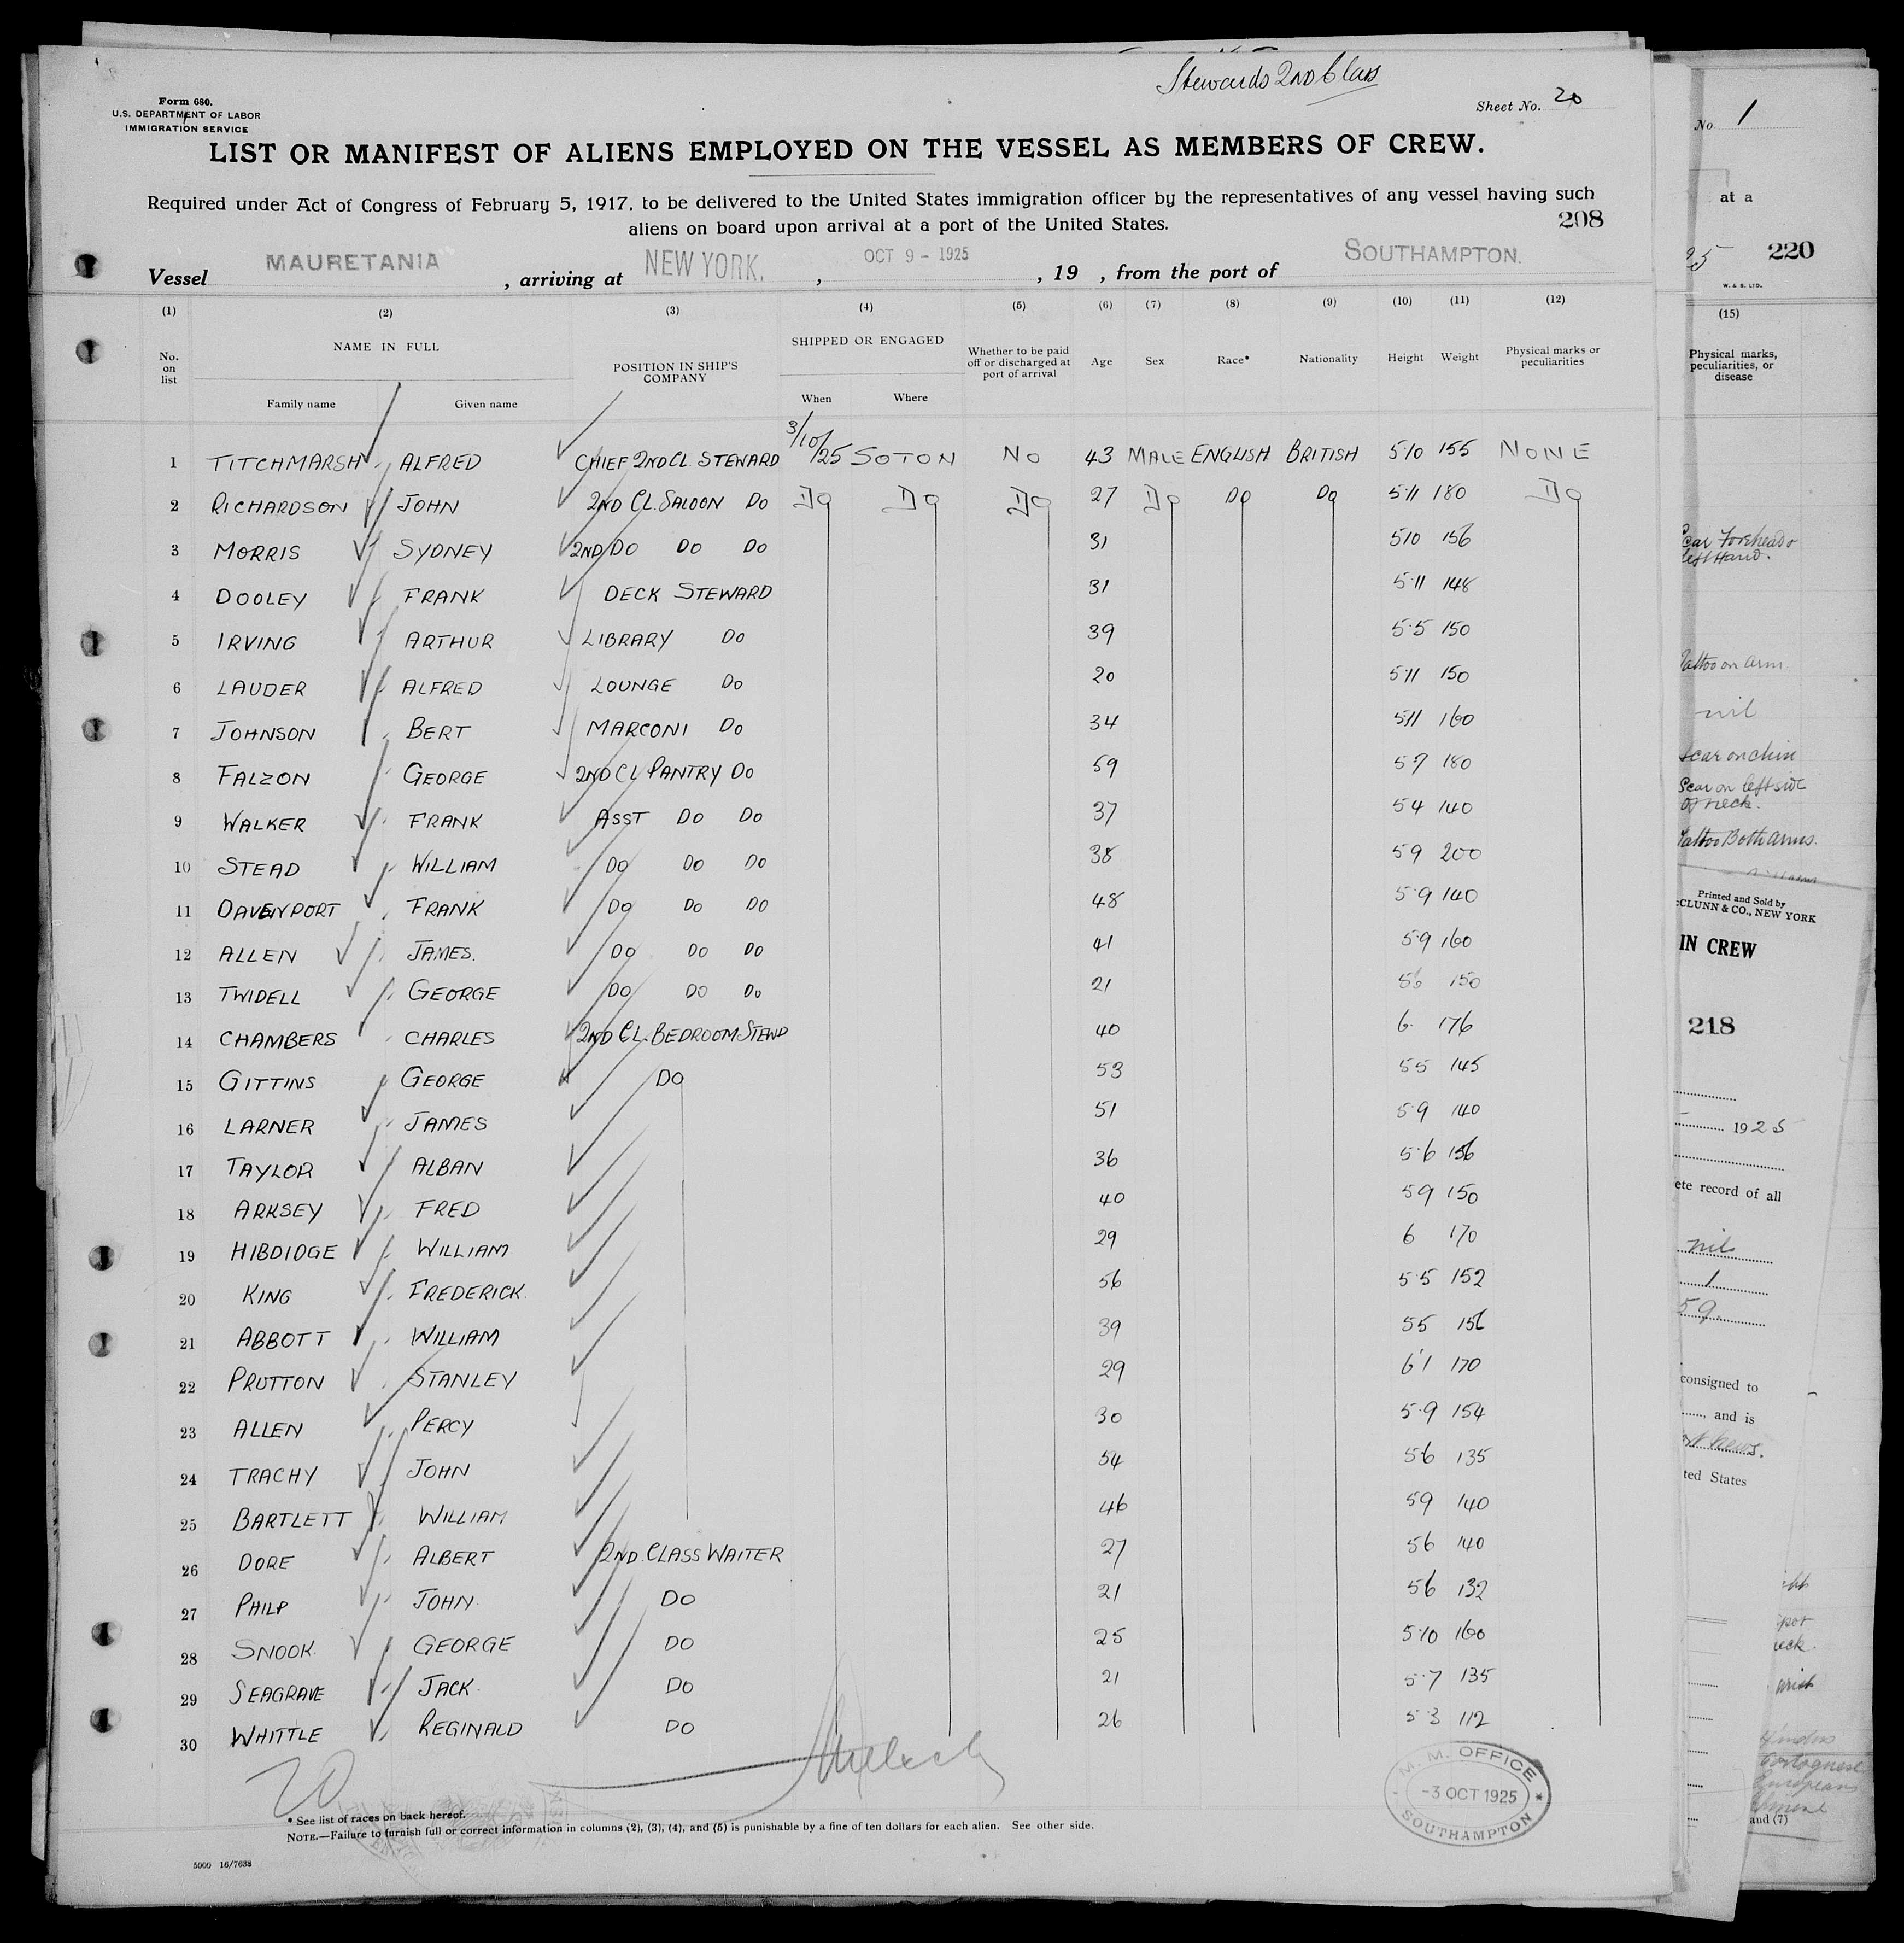 Stewards 2nd Class
Form 680.
U.S. DEPARTMENT OF LABOR
IMMIGRATION SERVICE
Sheet No. 20
LIST OR MANIFEST OF ALIENS EMPLOYED ON THE VESSEL AS MEMBERS OF CREW.
Required under Act of Congress of February 5, 1917, to be delivered to the United States immigration officer by the representatives of any vessel having such
aliens on board upon arrival at a port of the United States.
208
Vessel MAURETANIA , arriving at NEW YORK. , OCT 9 - 1925 , 19 , from the port of SOUTHAMPTON.
(1) (2) (3) (4) (5) (6) (7) (8) (9) (10) (11) (12)
No. on list NAME IN FULL POSITION IN SHIP'S COMPANY SHIPPED OR ENGAGED Whether to be paid off or discharged at port of arrival Age Sex Race* Nationality Height Weight Physical marks or peculiarities
Family name Given name When Where
1 TITCHMARSH ALFRED CHIEF 2ND CL. STEWARD 3/10/25 SOTON NO 43 MALE ENGLISH BRITISH 5/10 155 NONE
2 RICHARDSON JOHN 2ND CL. SALOON DO DO DO DO 27 DO DO DO 5·11 180 DO
3 MORRIS SYDNEY 2ND DO DO DO 31 5/10 156
4 DOOLEY FRANK DECK STEWARD 31 5·11 148
5 IRVING ARTHUR LIBRARY DO 39 5·5 150
6 LAUDER ALFRED LOUNGE DO 20 5/11 150
7 JOHNSON BERT MARCONI DO 34 5/11 160
8 FALZON GEORGE 2ND CL PANTRY DO 59 5 7 180
9 WALKER FRANK ASST DO DO 37 5 4 140
10 STEAD WILLIAM DO DO DO 38 5 9 200
11 DAVENPORT FRANK DO DO DO 48 5·9 140
12 ALLEN JAMES. DO DO DO 41 5·9 160
13 TWIDELL GEORGE DO DO DO 21 5 6 150
14 CHAMBERS CHARLES 2ND CL. BEDROOM STEWD 40 6· 176
15 GITTINS GEORGE DO 53 5 5 145
16 LARNER JAMES 51 5·9 140
17 TAYLOR ALBAN 36 5·6 156
18 ARKSEY FRED 40 5 9 150
19 HIBDIDGE WILLIAM 29 6 170
20 KING FREDERICK. 56 5·5 152
21 ABBOTT WILLIAM 39 5 5 156
22 PRUTTON STANLEY 29 6'1 170
23 ALLEN PERCY 30 5·9 154
24 TRACHY JOHN 54 5 6 135
25 BARTLETT WILLIAM 46 5 9 140
26 DORE ALBERT 2ND. CLASS WAITER 27 5 6 140
27 PHILP JOHN DO 21 5 6 132
28 SNOOK GEORGE DO 25 5/10 160
29 SEAGRAVE JACK DO 21 5·7 135
30 WHITTLE REGINALD DO 26 5·3 112
20
M. M. OFFICE
-3 OCT 1925
SOUTHAMPTON
* See list of races on back hereof.
NOTE.—Failure to furnish full or correct information in columns (2), (3), (4), and (5) is punishable by a fine of ten dollars for each alien. See other side.
5000 16/7638
No 1
at a
25 220
W. & S. LTD.
(15)
Physical marks,
peculiarities, or
disease
Scar Forehead
left Hand.
Tattoo on arm
nil
Scar on chin
Scar on left side
of neck.
Tattoo Both Arms.
Printed and Sold by
CLUNN & CO., NEW YORK
IN CREW
218
1925
ete record of all
nil
1
59.
consigned to
, and is
ted States
and (7)